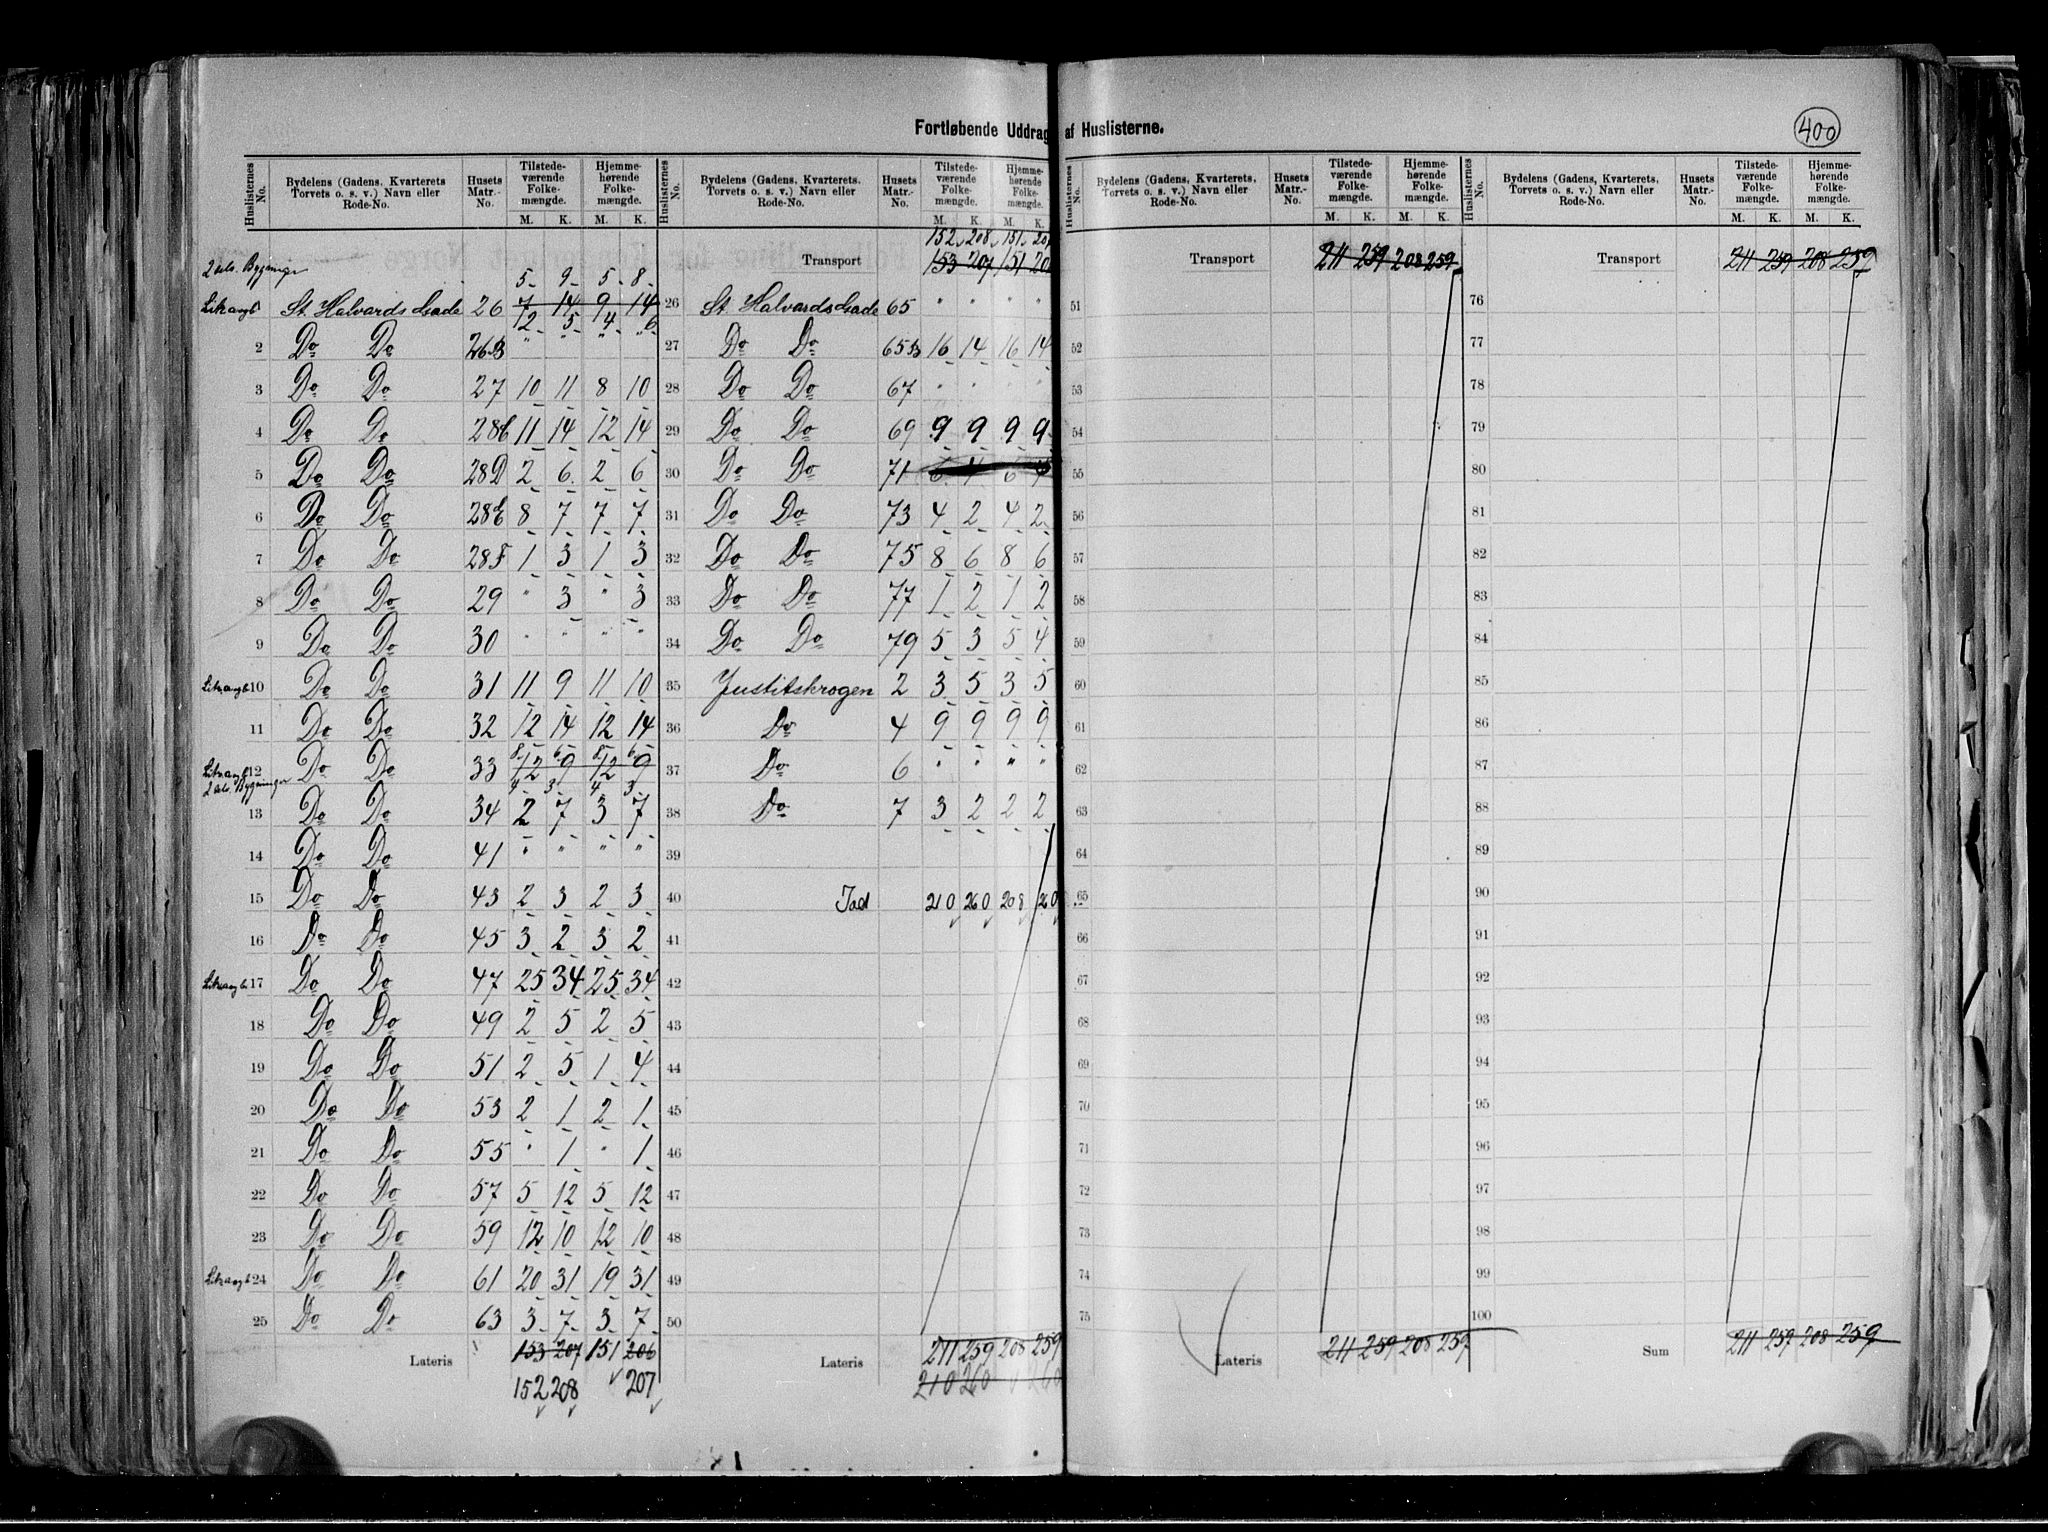 400
Fortløbende Uddrag af Huslisterne.
Huslisternes No. Bydelens (Gadens, Kvarterets, Torvets o. s. v.) Navn eller Rode-No. Husets Matr.-No. Tilstedeværende Folkemængde. M. K. Hjemmehørende Folkemængde. M. K.
2 ads. Bygninger 5 9 5 8
St. Halvards Gade 26 7 14 9 14
12 5 4 6
2 Do Do 26B " " " "
3 Do Do 27 10 11 8 10
4 Do Do 28C 11 14 12 14
5 Do Do 28D 2 6 2 6
6 Do Do 28E 8 7 7 7
7 Do Do 28F 1 3 1 3
8 Do Do 29 " 3 " 3
9 Do Do 30 " " " "
10 Do Do 31 11 9 11 10
11 Do Do 32 12 14 12 14
8 6 8 6
12 Do Do 33 12 9 12 9
2 ads. Bygninger 4 3 4 3
13 Do Do 34 2 7 3 7
14 Do Do 41 " " " "
15 Do Do 43 2 3 2 3
16 Do Do 45 3 2 3 2
17 Do Do 47 25 34 25 34
18 Do Do 49 2 5 2 5
19 Do Do 51 2 5 1 4
20 Do Do 53 2 1 2 1
21 Do Do 55 " 1 " 1
22 Do Do 57 5 12 5 12
23 Do Do 59 12 10 12 10
24 Do Do 61 20 31 19 31
25 Do Do 63 3 7 3 7
Lateris 153 207 151 206
152 208 207
Huslisternes No. Bydelens (Gadens, Kvarterets, Torvets o. s. v.) Navn eller Rode-No. Husets Matr.-No. Tilstedeværende Folkemængde. M. K. Hjemmehørende Folkemængde. M. K.
152 208 151 207
Transport 153 207 151 206
26 St. Halvards Gade 65 " " " "
27 Do Do 65B 16 14 16 14
28 Do Do 67 " " " "
29 Do Do 69 9 9 9 9
30 Do Do 71 6 4 6 4
31 Do Do 73 4 2 4 2
32 Do Do 75 8 6 8 6
33 Do Do 77 1 2 1 2
34 Do Do 79 5 3 5 4
35 Justitskrogen 2 3 5 3 5
36 Do 4 9 9 9 9
37 Do 6 " " " "
38 Do 7 3 2 2 2
39
40 Tad 210 260 208 260
41
42
43
44
45
46
47
48
49
50
Lateris 211 259 208 259
210 260 260
Huslisternes No. Bydelens (Gadens, Kvarterets, Torvets o. s. v.) Navn eller Rode-No. Husets Matr.-No. Tilstedeværende Folkemængde. M. K. Hjemmehørende Folkemængde. M. K.
Transport 211 259 208 259
51
52
53
54
55
56
57
58
59
60
61
62
63
64
65
66
67
68
69
70
71
72
73
74
75
Lateris 211 259 208 259
Huslisternes No. Bydelens (Gadens, Kvarterets, Torvets o. s. v.) Navn eller Rode-No. Husets Matr.-No. Tilstedeværende Folkemængde. M. K. Hjemmehørende Folkemængde. M. K.
Transport 211 259 208 259
76
77
78
79
80
81
82
83
84
85
86
87
88
89
90
91
92
93
94
95
96
97
98
99
100
Sum 211 259 208 259